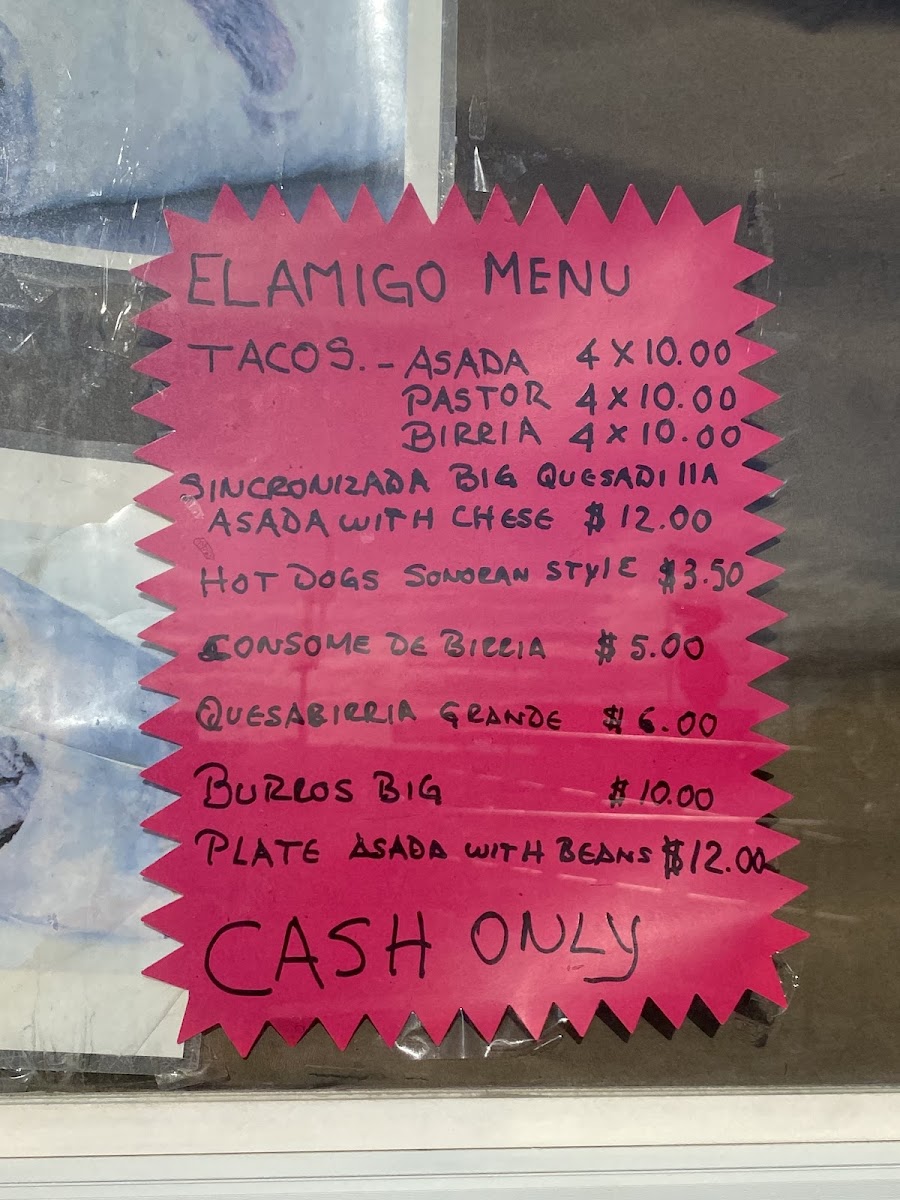 EL AMIGO MENU
TACOS.- ASADA 4 X 10.00
PASTOR 4 X 10.00
BIRRIA 4 X 10.00
SINCRONIZADA BIG QUESADIllA
ASADA WITH CHESE $ 12.00
HOT DOGS SONORAN STYlE $3.50
CONSOME DE BIRRIA $ 5.00
QUESABIRRIA GRANDE $ 6.00
BURROS BIG $ 10.00
PLATE ASADA WITH BEANS $12.00
CASH ONLY